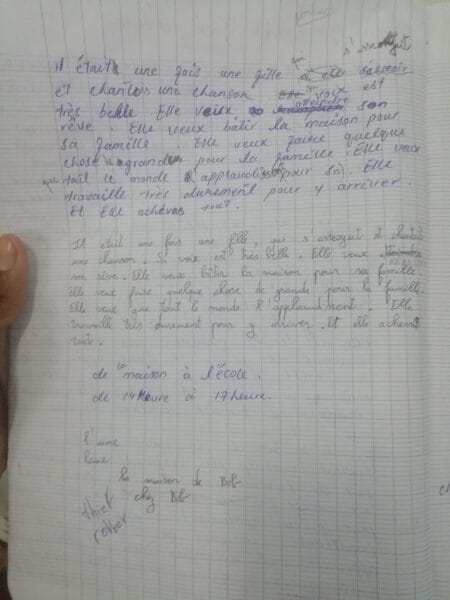 qui s'asseoyait
il était une fois une fille à elle s'asseoir
et chantais une chanson. Elle voix est
très belle. Elle veux atteindre son
rêve. Elle veux bâtir la maison pour
sa famille. Elle veux faire quelque
chose grande pour la famille. Elle veux
que tout le monde applaudissent pour soi. Elle
travaille très durement pour y arriver.
Et Elle achevas tout.
Il était une fois une fille, qui s'asseoyait et chantait
une chanson. Sa voix est très belle. Elle veux
son rêve. Elle veux bâtir la maison pour sa famille.
Elle veux faire quelque chose de grande pour la famille.
Elle veux que tout le monde l'applaudissent. Elle
travaille très durement pour y arriver. Et elle achevait
toute.
de la maison à l'école.
de 14Heure à 17heure.
l'une
la maison de Bob
chez Bob
thief
robber